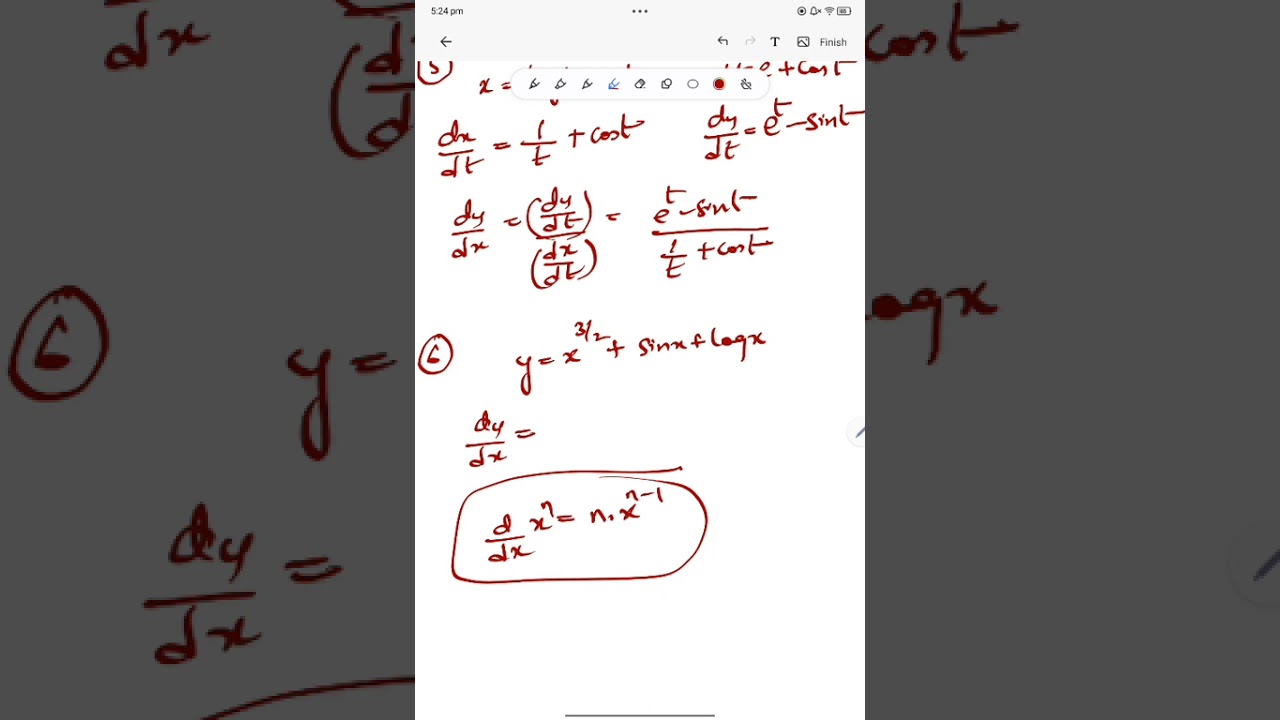 5:24 pm
Finish
5
x = + cost
dx/dt = 1/t + cost dy/dt = e^t - sint
dy/dx = (dy/dt)/(dx/dt) = (e^t - sint)/(1/t + cost)
6 y = x^3/2 + sinx + logx
dy/dx =
d/dx x^n = n.x^n-1